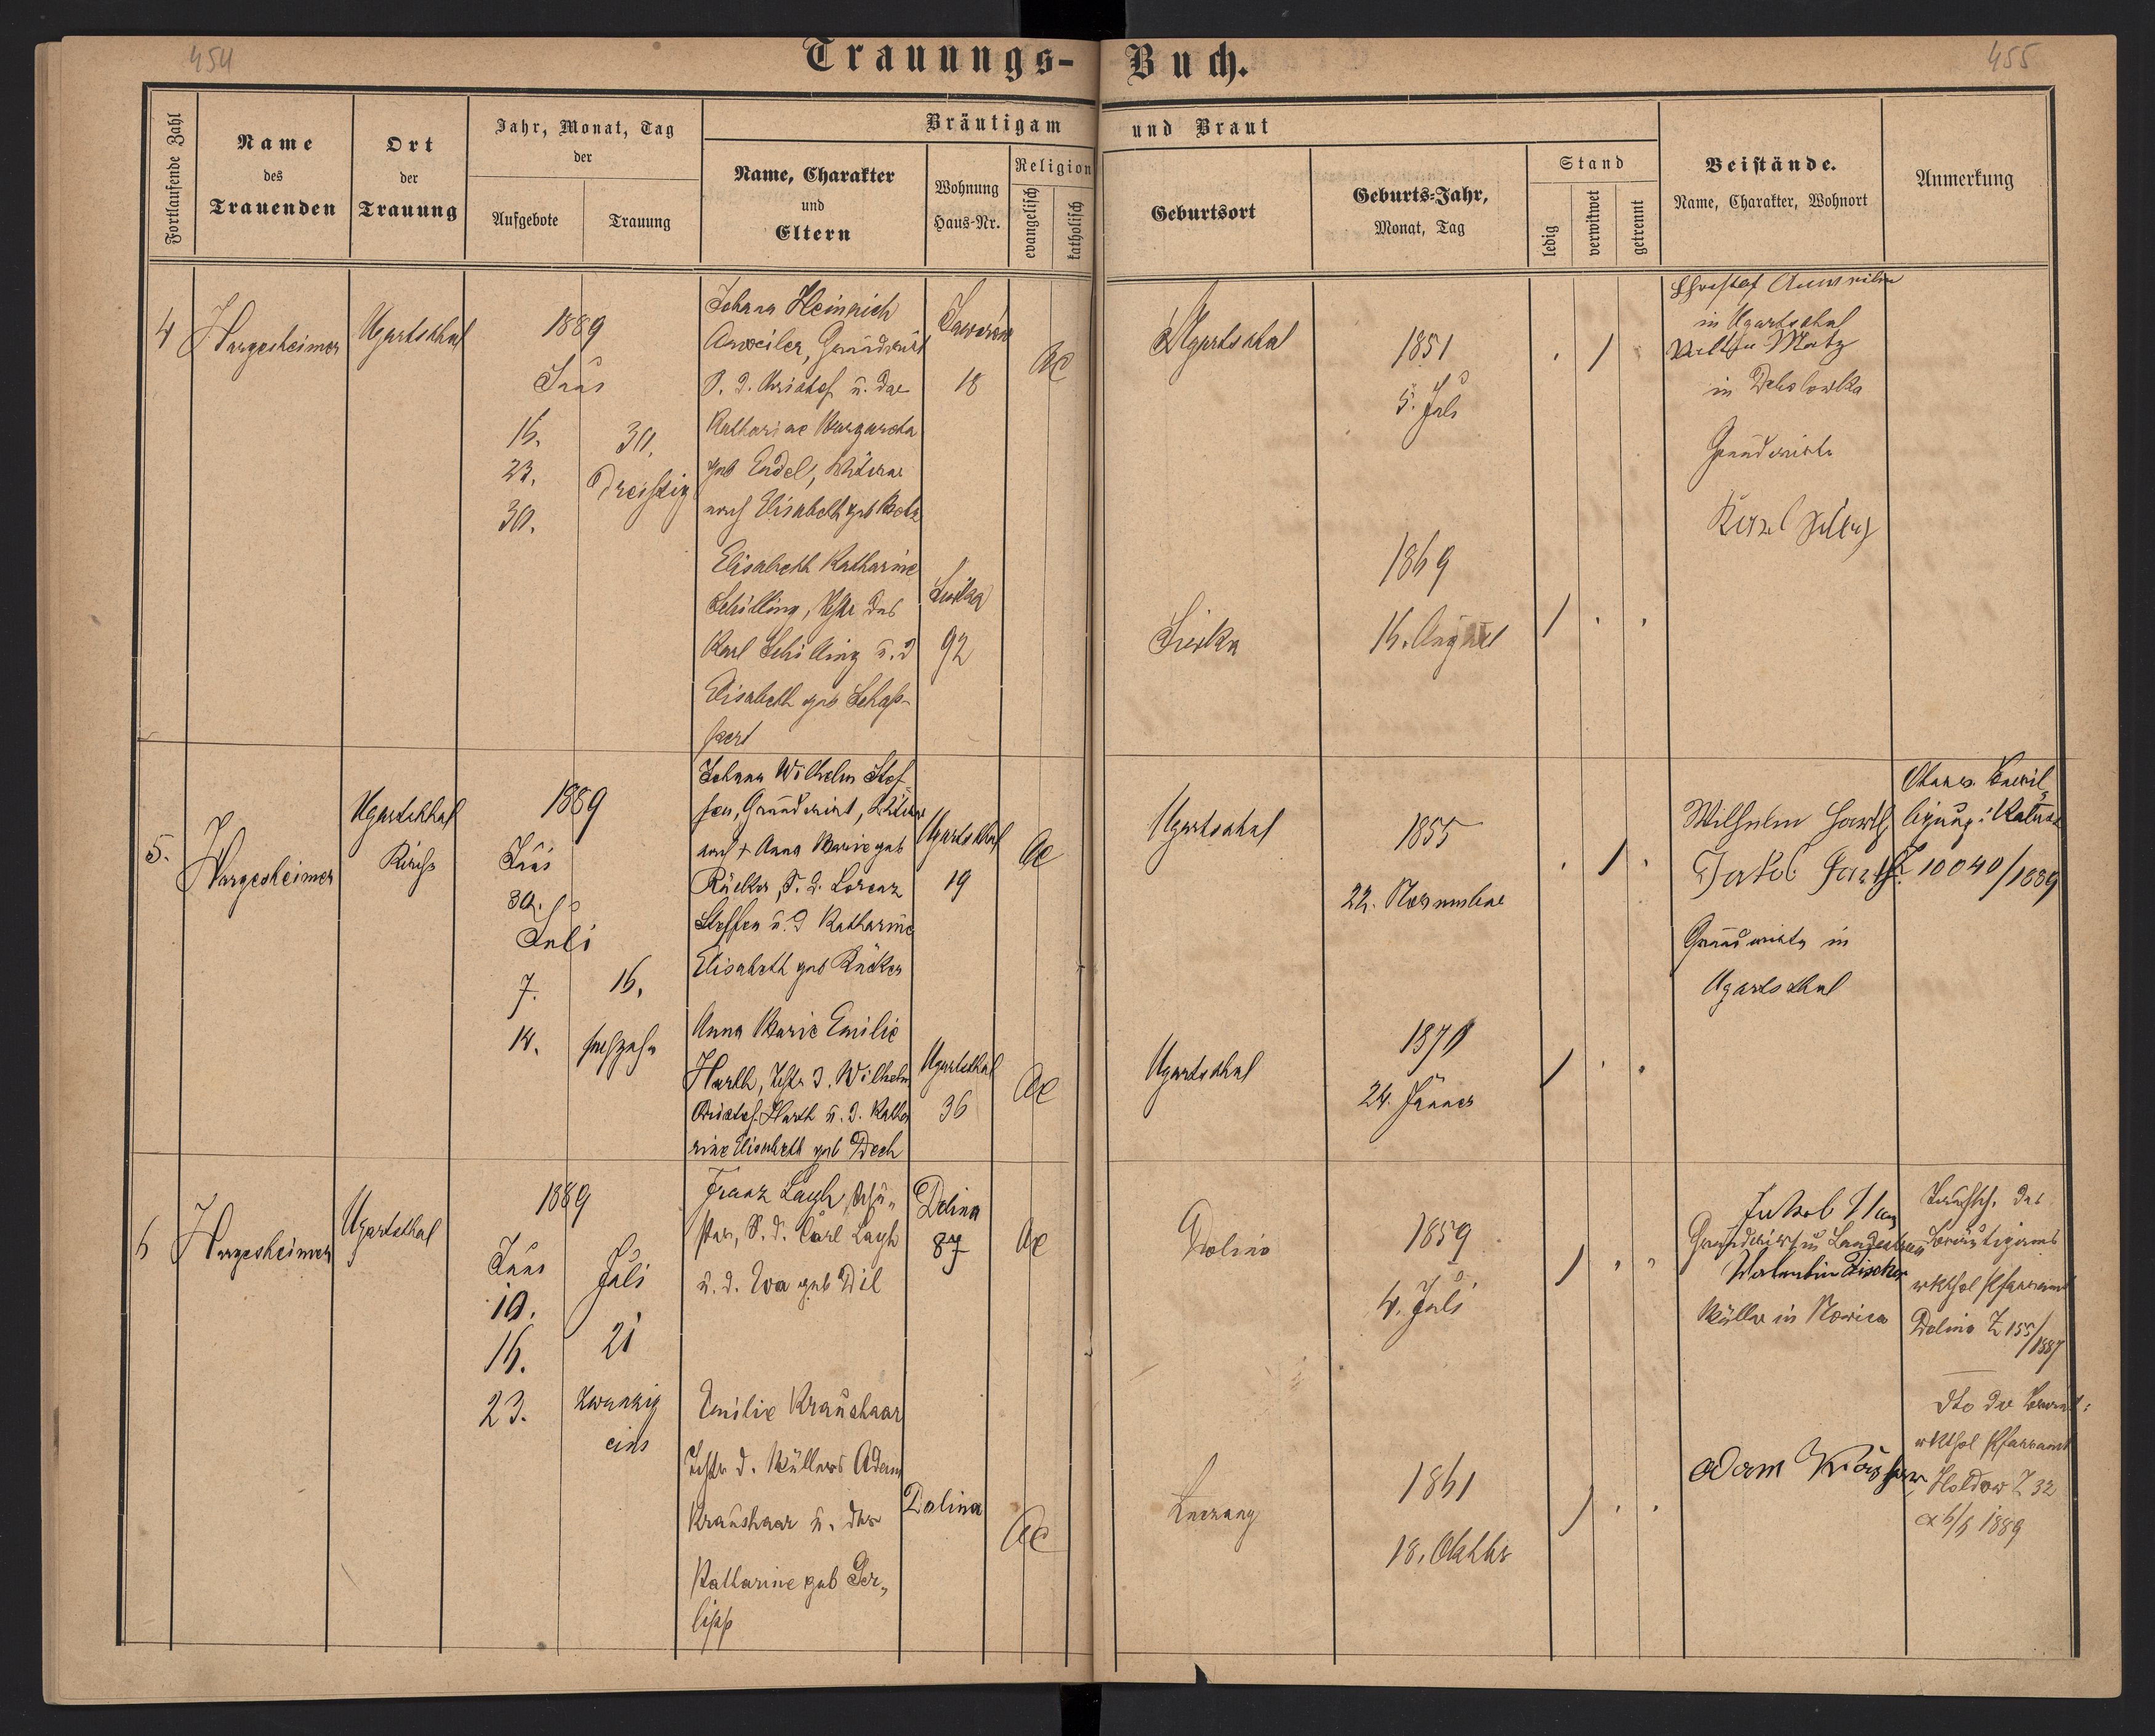 454
455
Trauungs-Buch.
Fortlaufende Zahl
Name
des
Trauenden
Ort
der
Trauung
Jahr, Monat, Tag
der
Aufgebote
Trauung
Bräutigam und Braut
Name, Charakter
und
Eltern
Wohnung
Haus-Nr.
Religion
evangelisch
katholisch
Geburtsort
Geburts-Jahr,
Monat, Tag
Stand
ledig
verwitwet
getrennt
Beistände.
Name, Charakter, Wohnort
Anmerkung
4
Hargesheimer
Ugartsthal
1889
Juni
16.
23.
30.
30.
Dreissig
Johann Heinrich
Anweiler, Grundwirt
S. d. Christof u. der
Katharine Margareta
geb Endel, Witwer
nach Elisabeth geb
18
AC
Ugartsthal
1851
5. Juli
in Ugartsthal
Matz
in Debolowka
Grundwirte
Karl
Elisabeth Katharine
Schilling, Tchtr des
Karl Schilling u. d
Elisabeth geb Schap-
pert
92
1869
16. August
5.
Hargesheimer
Ugartsthal
Kirche
1889
Juni
30.
Juli
7.
14.
16.
sechzehn
Johann Wilhelm Stef-
fen, Grundwirt, Witwer
nach + Anna Marie geb
Rücker, S. d. Lorenz
Steffen u. d Katharine
Elisabeth geb Rücker
Ugartsthal
19
AC
Ugartsthal
1855
22. November
Wilhelm Harth
Jakob Harth
Grundwirte in
Ugartsthal
Z 10040/1889
Anna Marie Emilie
Harth, Tchtr d. Wilhelm
Christof Harth u. d. Katha
rine Elisabeth geb Dech
Ugartsthal
36
AC
Ugartsthal
1870
24. Jänner
6
Hargesheimer
Ugartsthal
1889
Juni
10.
16.
23.
Juli
21
zwanzig
eins
Franz Layh, Schu-
ster, S. d. Carl Layh
u. d. Eva geb Dil
Dolina
87
AC
Dolina
1859
4. Juli
Jakob
Grundwirt in Landestreu
Valentin
Müller in Nowica
Taufsch. des
Bräutigams
rkthol Pfarramt
Dolina Z 155/
1887
Emilie Kraushaar
Tchtr d. Müllers Adam
Kraushaar u. der
Katharine geb Ger-
lipp
Dolina
AC
1861
18. Oktbr
Adam
dto der Braut:
rkthol Pfarramt
Z 32
1889